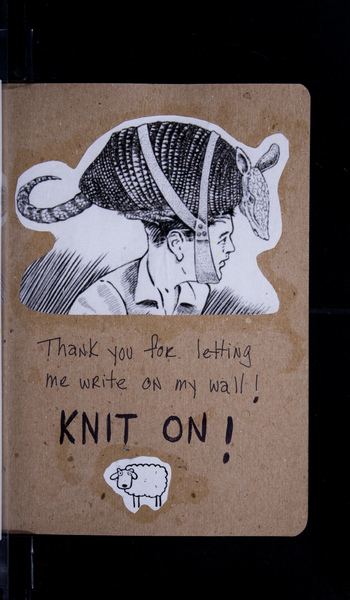 Thank you for letting
me write on my wall!
KNIT ON!